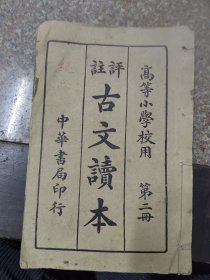 高等小學校用 第二冊
評註
古文讀本
中華書局印行